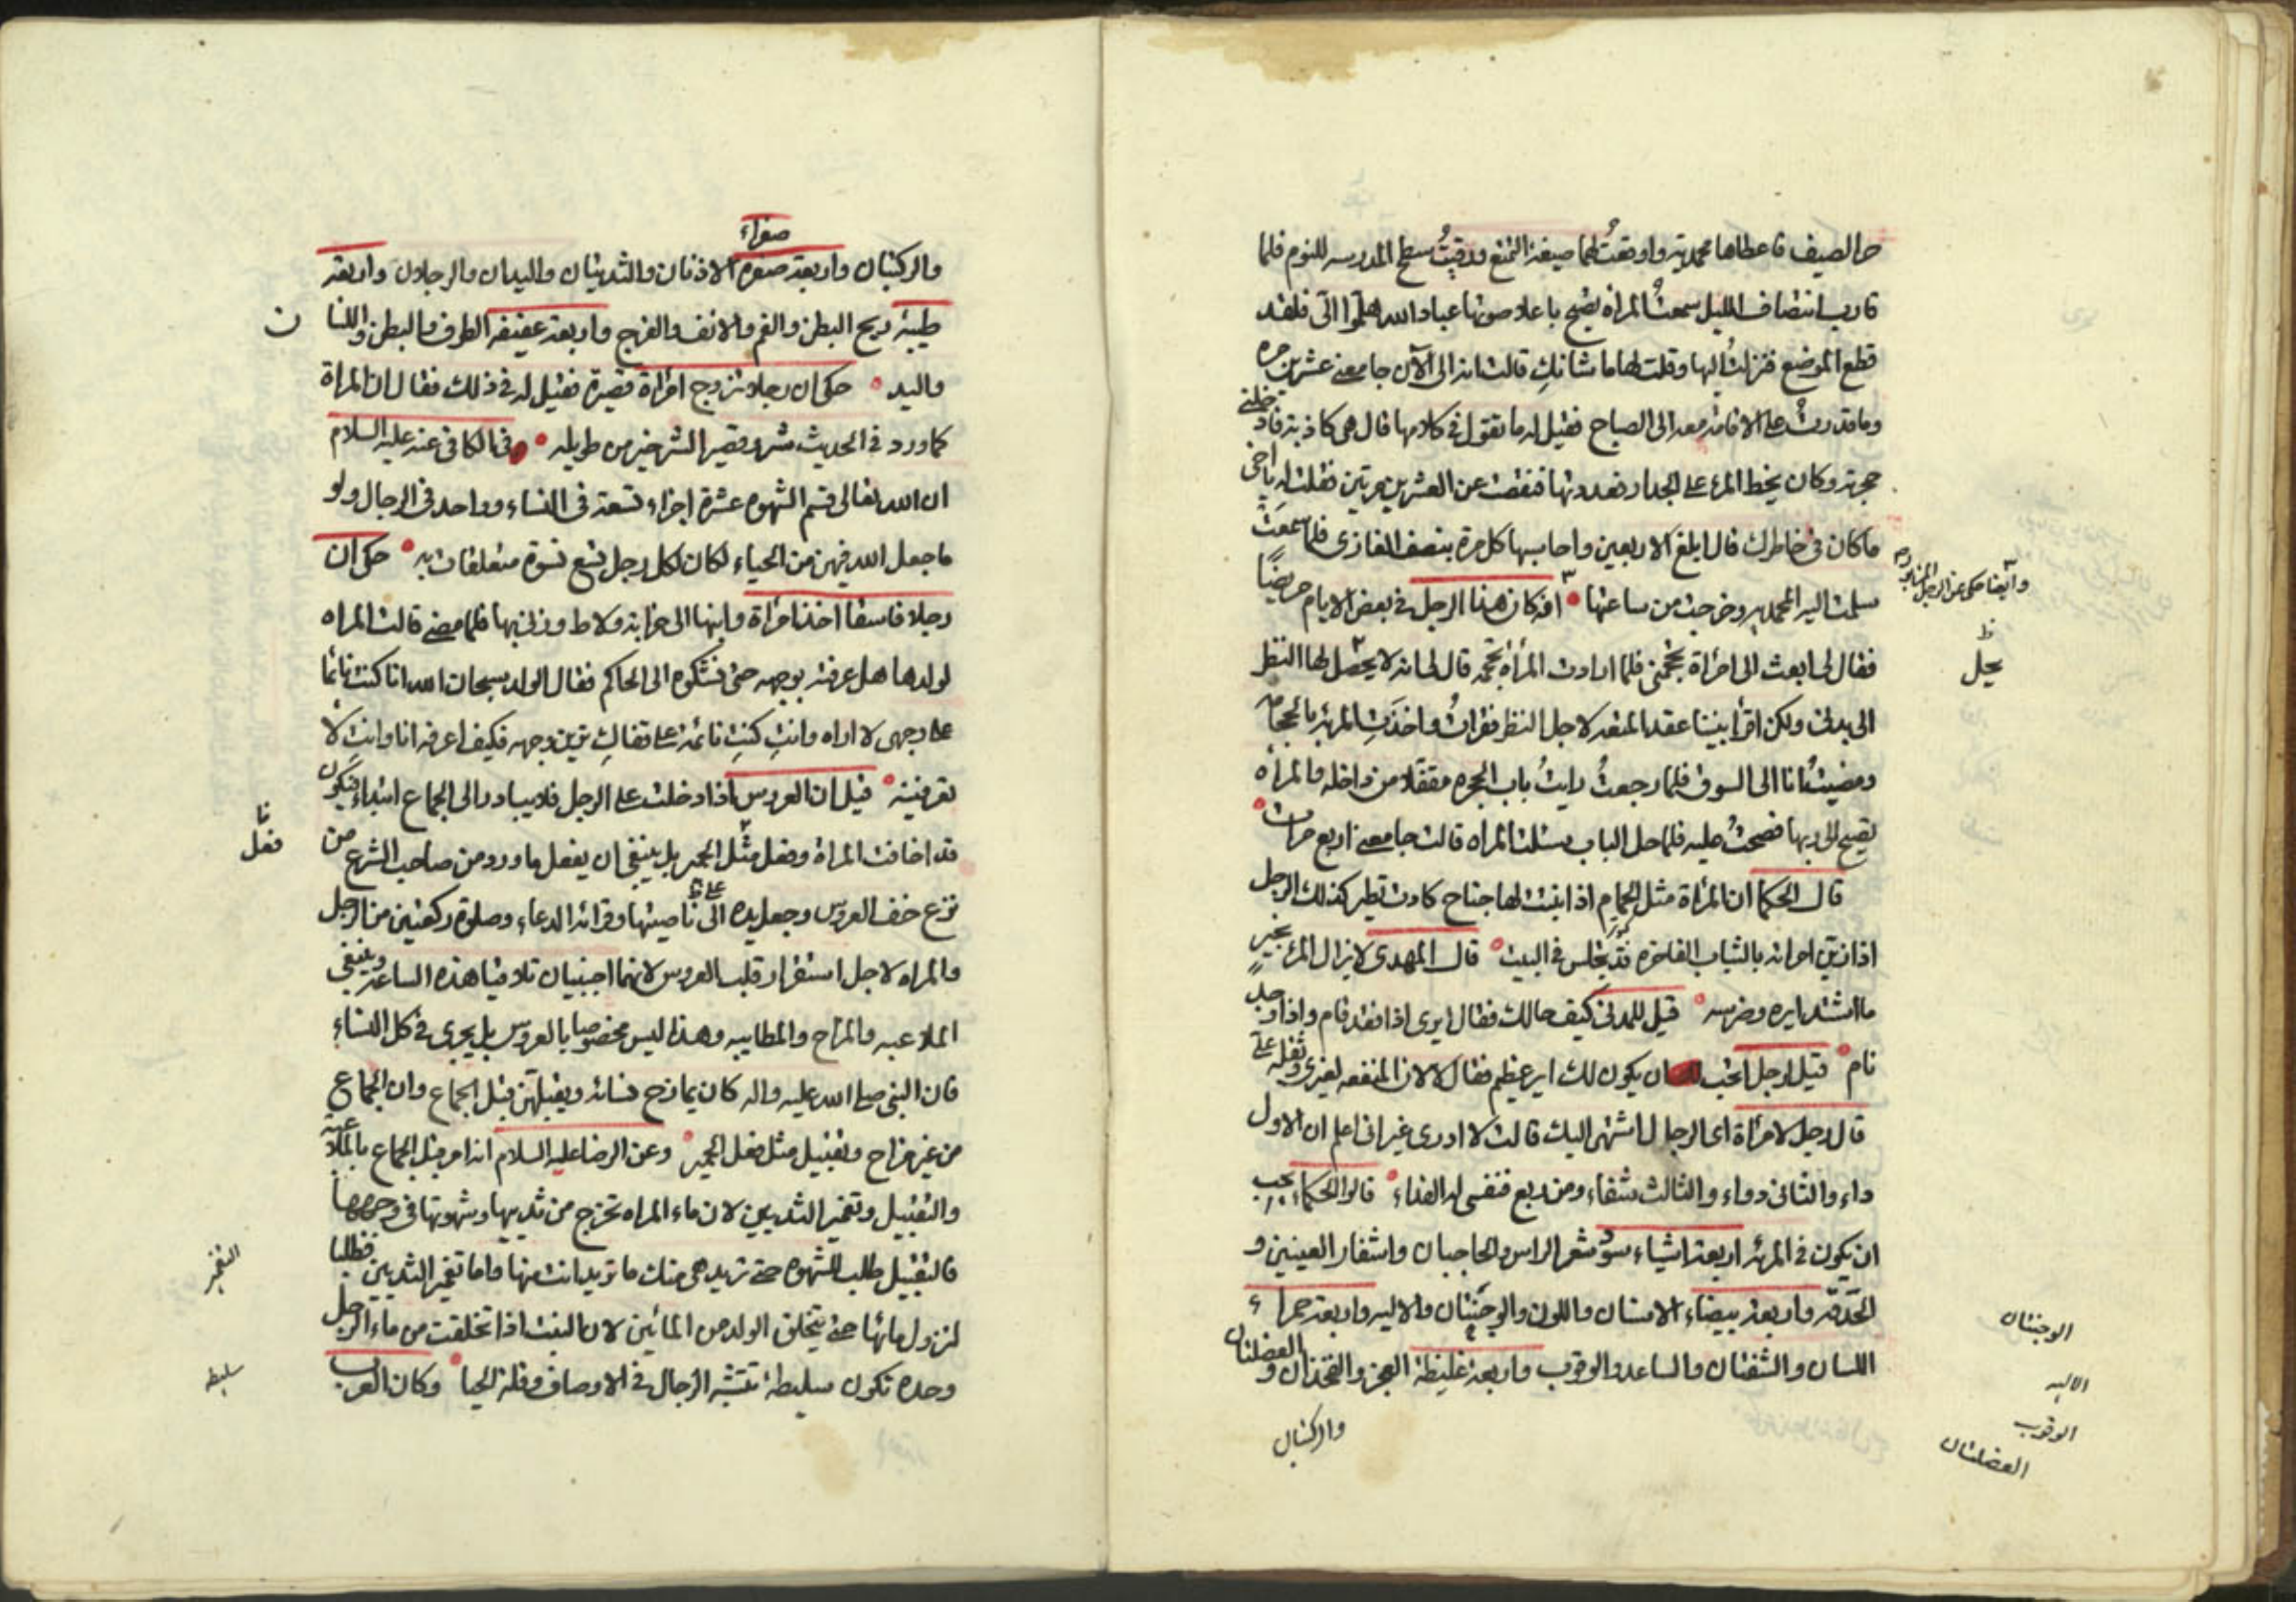 حر الصيف فاعطاها محمدية واوقعتُ لهما صيغة التمتع ورقيتُ سطح المدرسه للنوم فلما
قارب انتصاف الليل سمعتُ المراة تصيح باعلا صوتها عباد الله هلموا الىّ فلقد
قطع الموضع فنزلتُ اليها وقلت لها ما شانكِ قالت انه الى الآن جامعنى عشرين مره
وما قدرتُ على الاقامة معه الى الصباح فقيل له ما تقول فى كلامها قال هى كاذبة فادخلنى
حجرته وكان يخط المرة على الجدار فعددتها فنقصت عن العشرين مرتين فقلت له يا اخى
ما كان فى خاطرك قال ابلغ الاربعين واحاسبها كل مرة بنصف الغازى فلما سمعَتْ
سلمت اليه المحمديه وخرجت من ساعتها انه كان هذا الرجل فى بعض الايام مريضًا
وايضا حكى عن الرجل
فقال لى ابعث الى امراة تحجمنى فلما ارادت المرأة تحجمه قال لى انه لا يحصل لها النظر
يحل
الى بدنى ولكن اقرأ بيننا عقد المتعه لاجل النظر فقراتُ واخذَتِ المرئة بالحجامه
ومضيتُ انا الى السوق فلما رجعتُ رايتُ باب الحجره مقفلا من داخله والمرأه
تصيح الى ربها فصحتُ عليه فلما حل الباب سئلت المراه قالت جامعنى اربع مرات
قال الحكما ان المرأة مثل الحمام اذا نبت لها جناح كادت تطير كذلك الرجل
اذا زين امراته بالثياب الفاخره فلا تجلس فى البيت قال المهدى لا يزال المرء بخيرٍ
ما اشتد ايره وضرسه قيل للمدنى كيف حالك فقال ايرى اذا فقد قام واذا وجد
نام قيل لرجل اتحب ان يكون لك اير عظيم فقال لا لان المنفعه لغيرى وثقله علىّ
قال رجل لامرأة اى الرجال اشهى اليك قالت لا ادرى غير انى اعلم ان الاول
داء والثانى دواء والثالث شفاء ومن ربع فنفسى له الفداء قالوا الحكماء يجب
ان يكون فى المرئه اربعة اشياء سوُد شعر الراس والحاجبان واشفار العينين و
الحدقه واربعة بيضاء الاسنان واللون والوجنتان والاليه واربعة حمراء
الوجنتان
اللسان والشفتان والساعد والوقوب واربعة غليظة العجز والفخذان والعضلتان و
الاليه
الوقوب
العضلتان
والركبتان
صغراء
والركبتان واربعة صغره الاذنان والثديتان واليدان والرجلان واربعة
طيبة ريح البطن والفم والانف والفرج واربعة عفيفه الطرف والبطن واللسا
ن
واليد حكى ان رجلا تزوج امرأة قصيرة فقيل له فى ذلك فقال ان المراة
كما ورد فى الحديث شر وقصير الشر خير من طويله وفى الكافى عنه عليه السلام
ان الله تعالى قسم الشهوه عشرة اجزاء تسعة فى النساء وواحد فى الرجال ولو
ما جعل الله فيهن من الحياء لكان لكل رجل تسع نسوة متعلقات به حكى ان
رجلا فاسقا اخذ امراة وابنها الى خرابة ولاط وزنى بها فلما مضى قالت المراه
لولدها هل عرفته بوجهه حتى نشكوه الى الحاكم فقال الولد سبحان الله انا كنت نائما
على وجهى لا اراه وانتِ كنتِ نائمة على قفاكِ ترين وجهه فكيف اعرفه انا وانتِ لا
تعرفينه قيل ان العروس اذا دخلت على الرجل فلا يبادر الى الجماع ابتداء فيكون
قد اخافت المراة وفعل مثل الحمير بل ينبغى ان يفعل ما ورد من صاحب الشرع من
فعل
نزع خف العروس وجعل يده الى ناصيتها وقرائة الدعاء وصلوة ركعتين من الرجل
على
والمراه لاجل استقرار قلب العروس لانهما اجنبيان تلاقيا هذه الساعة وينبغى
الملاعبه والمزاح والمطايبه وهذا ليس مخصوصا بالعروس بل يجرى فى كل النساء
فان النبى صلى الله عليه واله كان يمازح نسائه ويقبلهن قبل الجماع وان الجماع
من غير مزاح وتقبيل مثل فعل الحمير وعن الرضا عليه السلام انه امر قبل الجماع بالملاعبة
والتقبيل وتغميز الثديين لان ماء المراه تخرج من ثدييها وشهوتها فى وجهها
فالتقبيل طلب للشهوه حتى تريد هى منك ما تريد انت منها واما تغميز الثديين فطلبا
لنزول مائها حتى يتخلق الولد من المائين لان البنت اذا تخلقت من ماء الرجل
وحده تكون سليطة تتشبه الرجال فى الاوصاف وقلة الحيا وكان العرب
سليطه